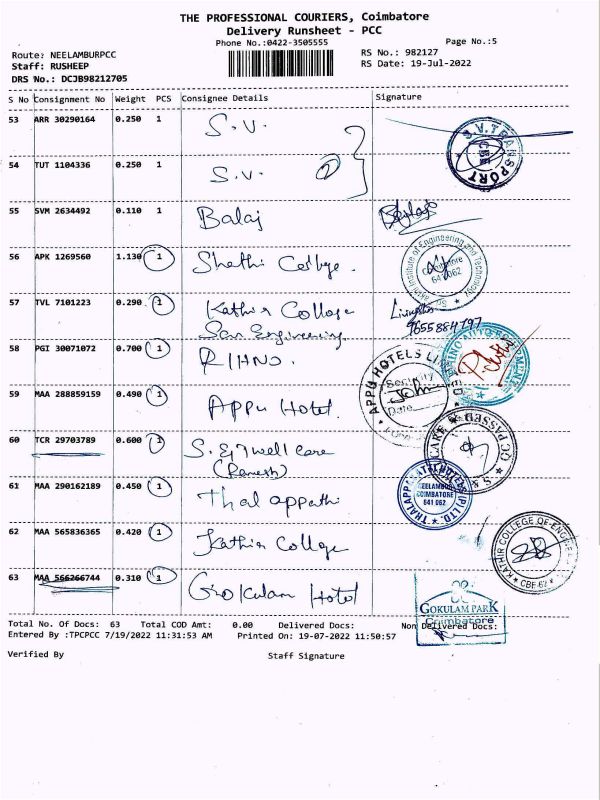 THE PROFESSIONAL COURIERS, Coimbatore
Delivery Runsheet - PCC
Phone No.:0422-3505555
Page No.:5
Route: NEELAMBURPCC
RS No.: 982127
Staff: RUSHEEP
RS Date: 19-Jul-2022
DRS No.: DCJB98212705
S No Consignment No Weight PCS Consignee Details Signature
53 ARR 30290164 0.250 1 S.V.
S.V.TRANSPORT CBE
54 TUT 1104336 0.250 1 S.V. 2
55 SVM 2634492 0.110 1 Balaj
56 APK 1269560 1.130 1 Shathi College.
of Engineering and Technology Coimbatore 641 062
57 TVL 7101223 0.290 1 Kathir College Livingston
San Engineering 9655884797
58 PGI 30071072 0.700 1 RIHNO.
59 MAA 288859159 0.490 1 Appu Hotel.
APPU HOTELS LIMITED Security John Date
60 TCR 29703789 0.600 1 S. & Well Care
(Ramesh)
CARE QC PASSED
61 MAA 290162189 0.450 1 Thalappathi
NEELAMBUR COIMBATORE 641 062 (P) LTD.
62 MAA 565836365 0.420 1 Kathir College
KATHIR COLLEGE OF ENGINEERING CBE-62
63 MAA 566266744 0.310 1 Gokulam Hotel
GOKULAM PARK
Coimbatore
Total No. Of Docs: 63 Total COD Amt: 0.00 Delivered Docs: Non Delivered Docs:
Entered By :TPCPCC 7/19/2022 11:31:53 AM Printed On: 19-07-2022 11:50:57
Verified By Staff Signature